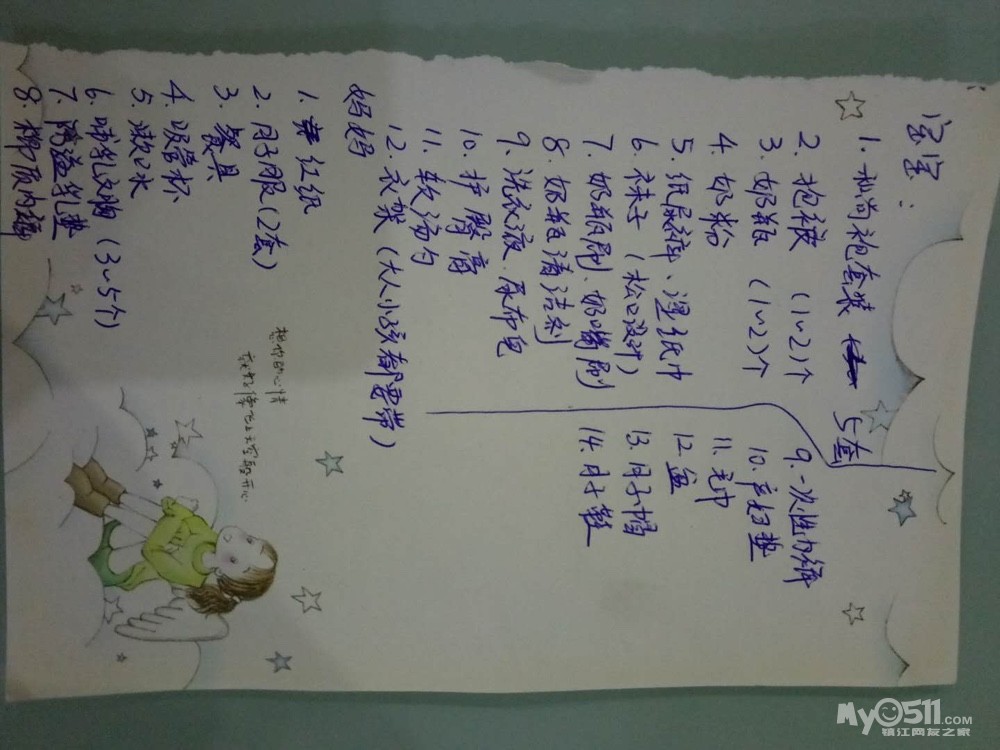 宝宝：
1. 和尚袍套装 5套
2. 抱被 （1~2）个
3. 奶瓶 （1~2）个
4. 奶粉
5. 纸尿裤、湿纸巾
6. 袜子（松口设计）
7. 奶瓶刷、奶嘴刷
8. 奶瓶清洁剂
9. 洗衣液、尿布皂
10. 护臀膏
11. 软汤勺
12. 衣架（大人小孩都要带）
妈妈
1. 红纸
2. 月子服（2套）
3. 餐具
4. 吸管杯
5. 漱口水
6. 哺乳文胸（3~5个）
7. 防溢乳垫
8. 棉质内裤
9. 一次性内裤
10. 产妇垫
11. 毛巾
12. 盆
13. 月子帽
14. 月子鞋
想你的心情
就好像飞上天空
My0511.com
镇江网友之家